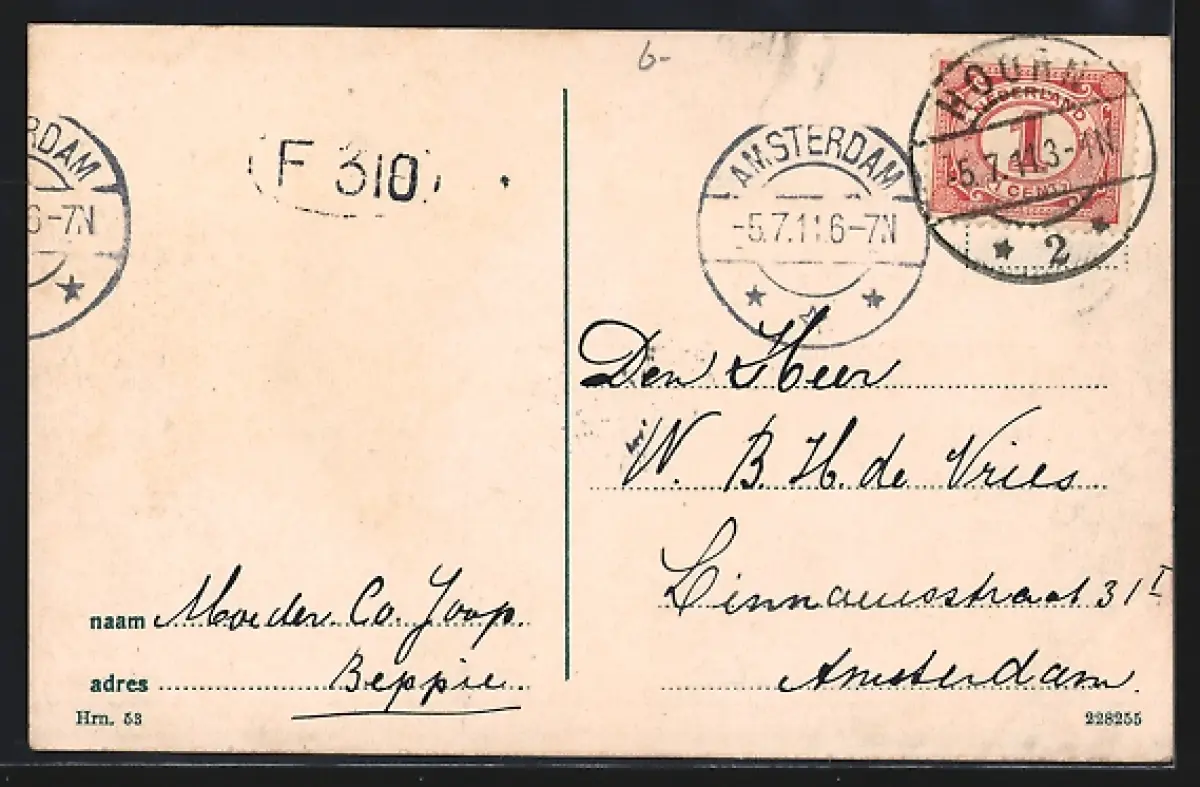 6-
RDAM
6-7N
F 310
AMSTERDAM
-5.7.11.6-7N
HOORN
-5.7.11.3-4N
2
NEDERLAND
1
1 CENT
Den Heer
W. B. H. de Vries
Linnaeusstraat 31 I
Amsterdam.
naam Moeder. Co. Joop.
adres Beppie.
Hrn. 53
228255